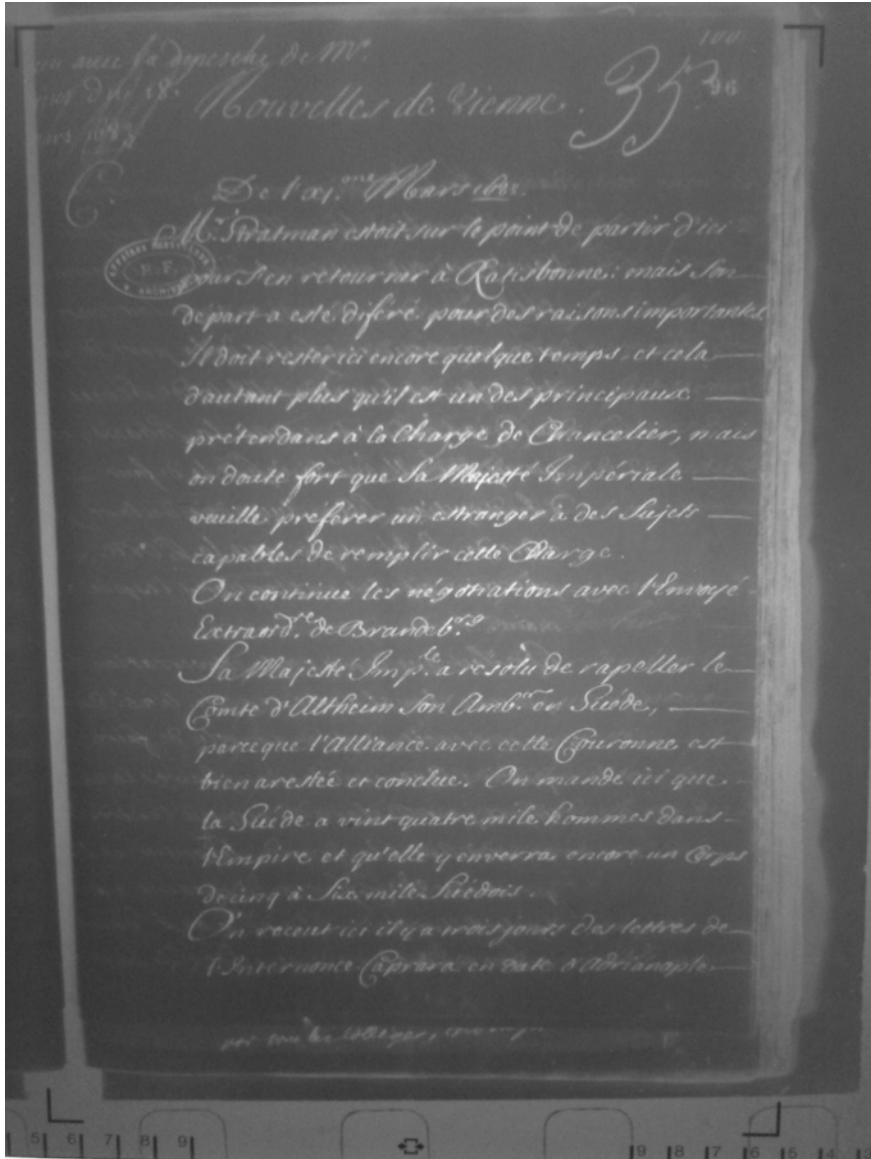 avec sa depesche de Mr.
du 18.
mars 1683
100
35
96
Nouvelles de Vienne.
De l'xi.me Mars 1683.
Mr. Stratman estoit sur le point de partir d'ici
pour s'en retourner à Ratisbonne: mais son
depart a esté diferé pour des raisons importantes
Il doit rester ici encore quelque temps, et cela
d'autant plus qu'il est un des principaux
prétendans à la Charge de Chancelier, mais
on doute fort que Sa Majesté Impériale
veuille préferer un estranger à des Sujets
capables de remplir cette Charge.
On continue les négotiations avec l'Envoyé
Extraord.re de Brandeb.rg
Sa Majesté Imp.le a resolu de rapeller le
Comte d'Altheim son Amb.eur en Suéde,
parce que l'Alliance avec cette Couronne est
bien arestée et conclue. On mande ici que
la Suéde a vint quatre mile hommes dans
l'Empire et qu'elle y enverra encore un Corps
de cinq à Six mile Suédois.
On receut ici il y a trois jours des lettres de
l'Internonce Caprara en date d'Adrianople
R.F.
5 6 7 8 9
9 8 7 6 5 4 3